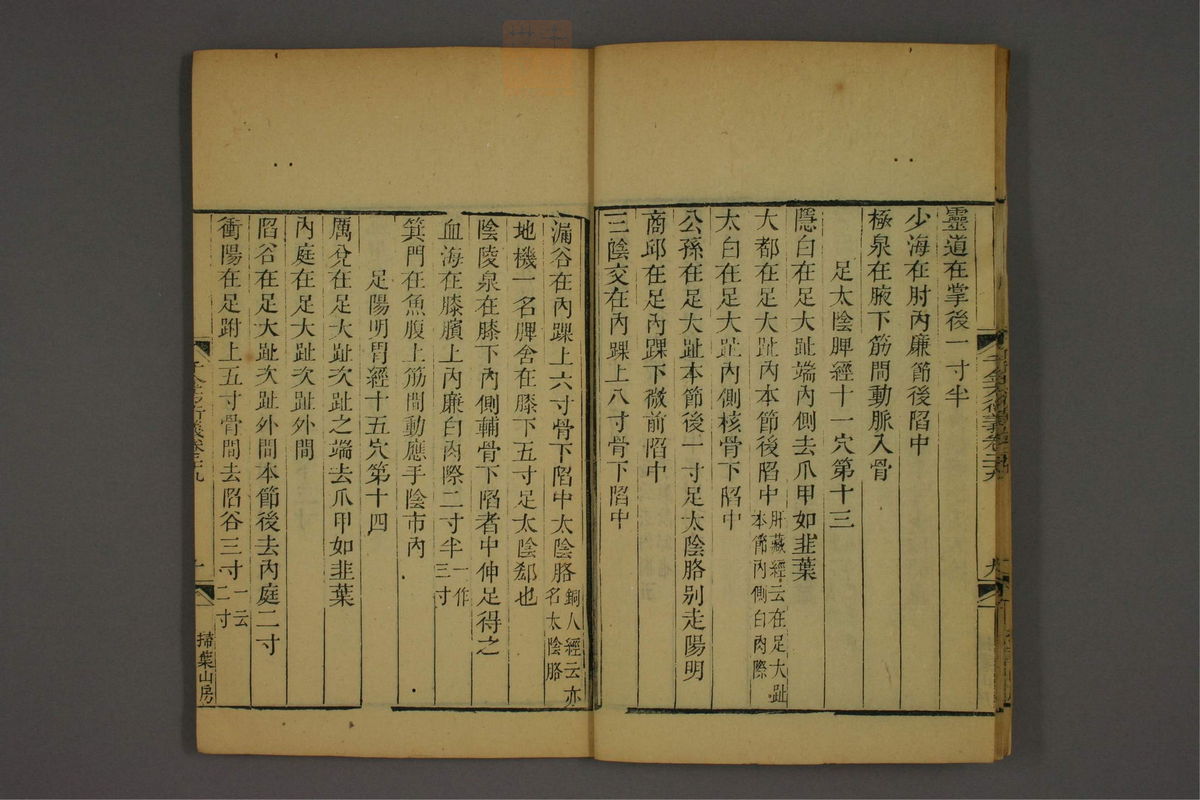 靈道在掌後一寸半
少海在肘內廉節後陷中
極泉在腋下筋間動脈入骨
足太陰脾經十一穴第十三
隱白在足大趾端內側去爪甲如韭葉
大都在足大趾內本節後陷中肝藏經云在足大趾本節內側白肉際
太白在足大趾內側核骨下陷中
公孫在足大趾本節後一寸足太陰胳别走陽明
商邱在足內踝下微前陷中
三陰交在內踝上八寸骨下陷中
漏谷在內踝上六寸骨下陷中太陰胳銅人經云亦名太陰胳
地機一名脾舍在膝下五寸足太陰郄也
陰陵泉在膝下內側輔骨下陷者中伸足得之
血海在膝臏上內廉白肉際二寸半一作三寸
箕門在魚腹上筋間動應手陰市內
足陽明胃經十五穴第十四
厲兌在足大趾次趾之端去爪甲如韭葉
內庭在足大趾次趾外間
陷谷在足大趾次趾外間本節後去內庭二寸
衝陽在足跗上五寸骨間去陷谷三寸一云二寸
千金方衍義卷二十九
掃葉山房